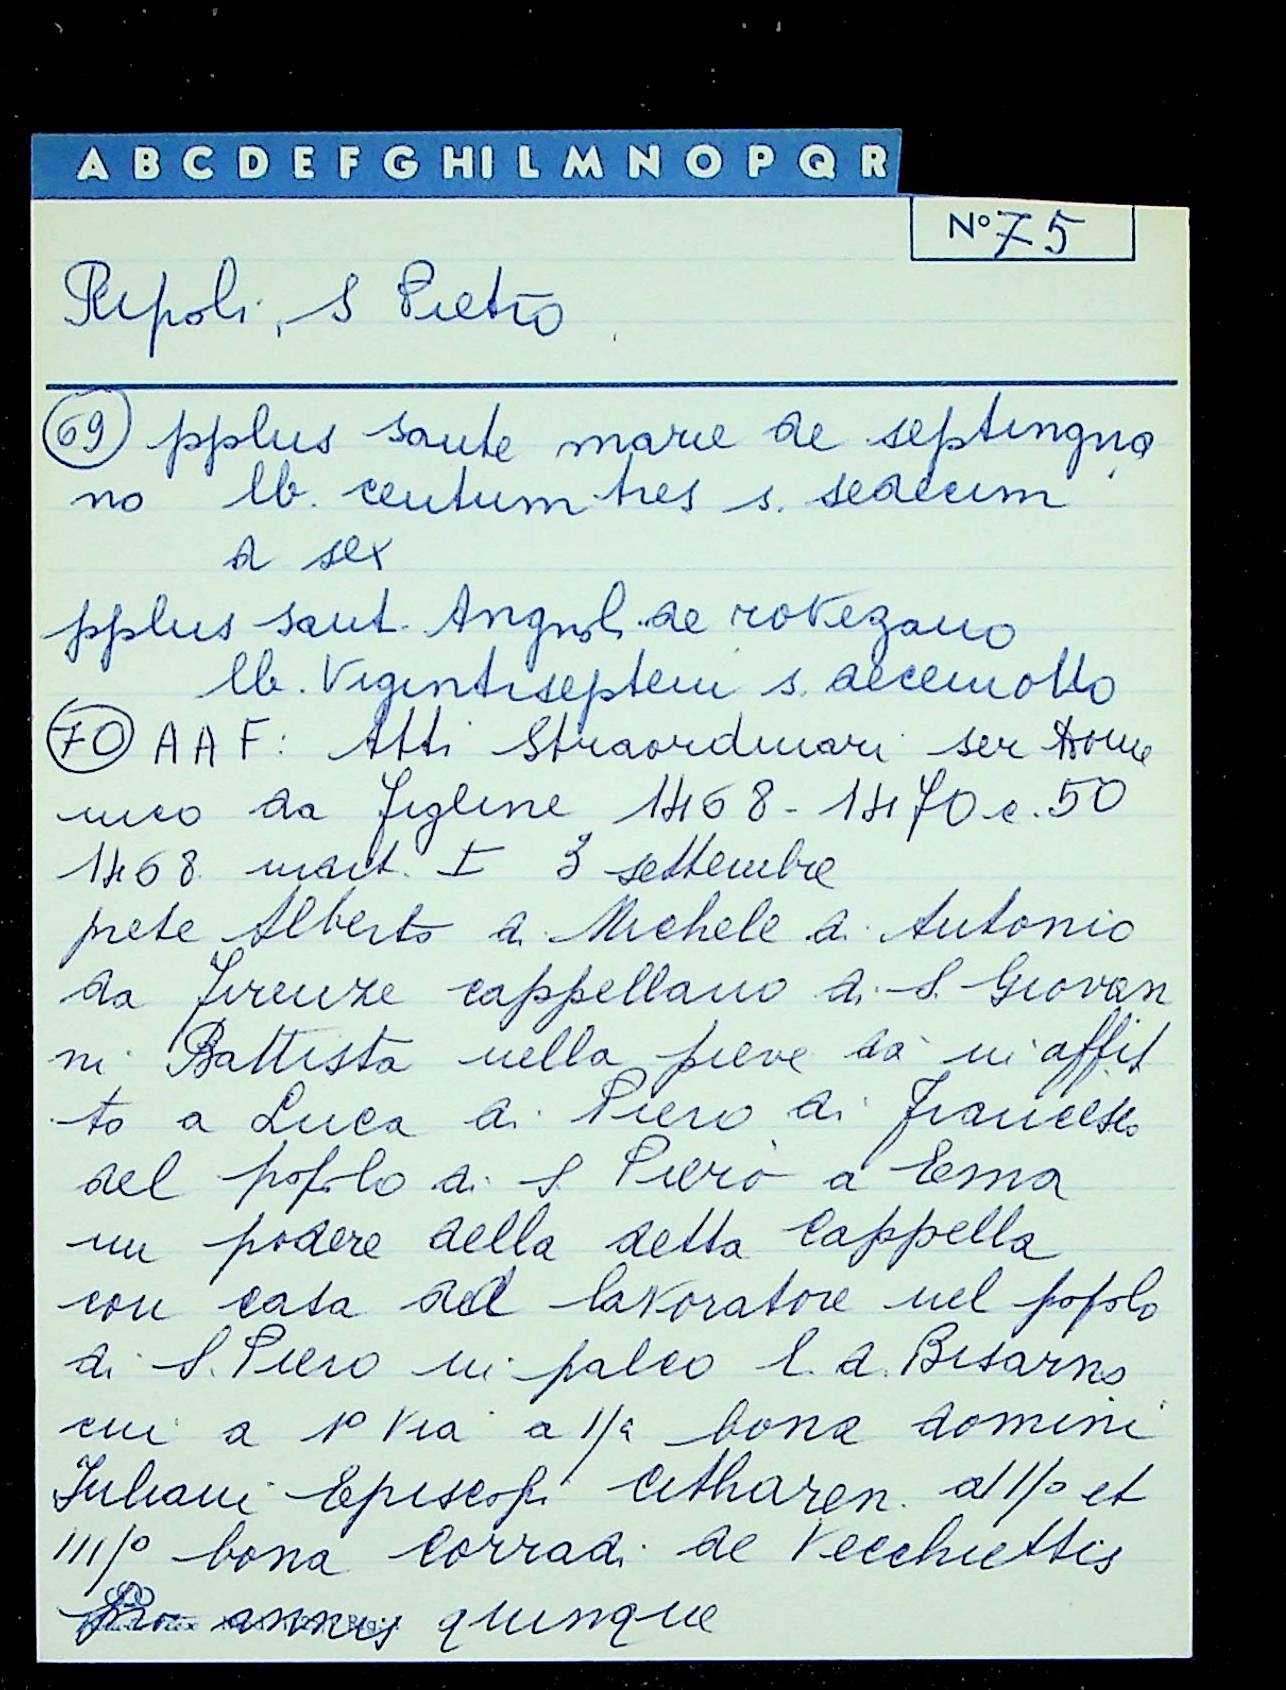 A B C D E F G H I L M N O P Q R
N° 75
Ripoli, S Pietro
69 pplus sante marie de septingna
no lb. centum tres s. sedecim
d sex
pplus sant. Angnoli de rovezano
lb. Vigintiseptem s. decemotto
70 A A F: Atti Straordinari ser Dome
nico da Figline 1468-1470 c. 50
1468 mart. I 3 settembre
prete Alberto di Michele di Antonio
da Firenze cappellano di S. Giovan
ni Battista nella pieve dà in affit
to a Luca di Piero di Francesco
del popolo di S Piero a Ema
un podere della detta Cappella
con casa del lavoratore nel popolo
di S. Piero in palco l. d. Bisarno
cui a 1° via a 1/a bona domini
Iuliani Episcopi Citharen. a 11/° et
111/° bona Corradi de Vecchiettis
pro annis quinque